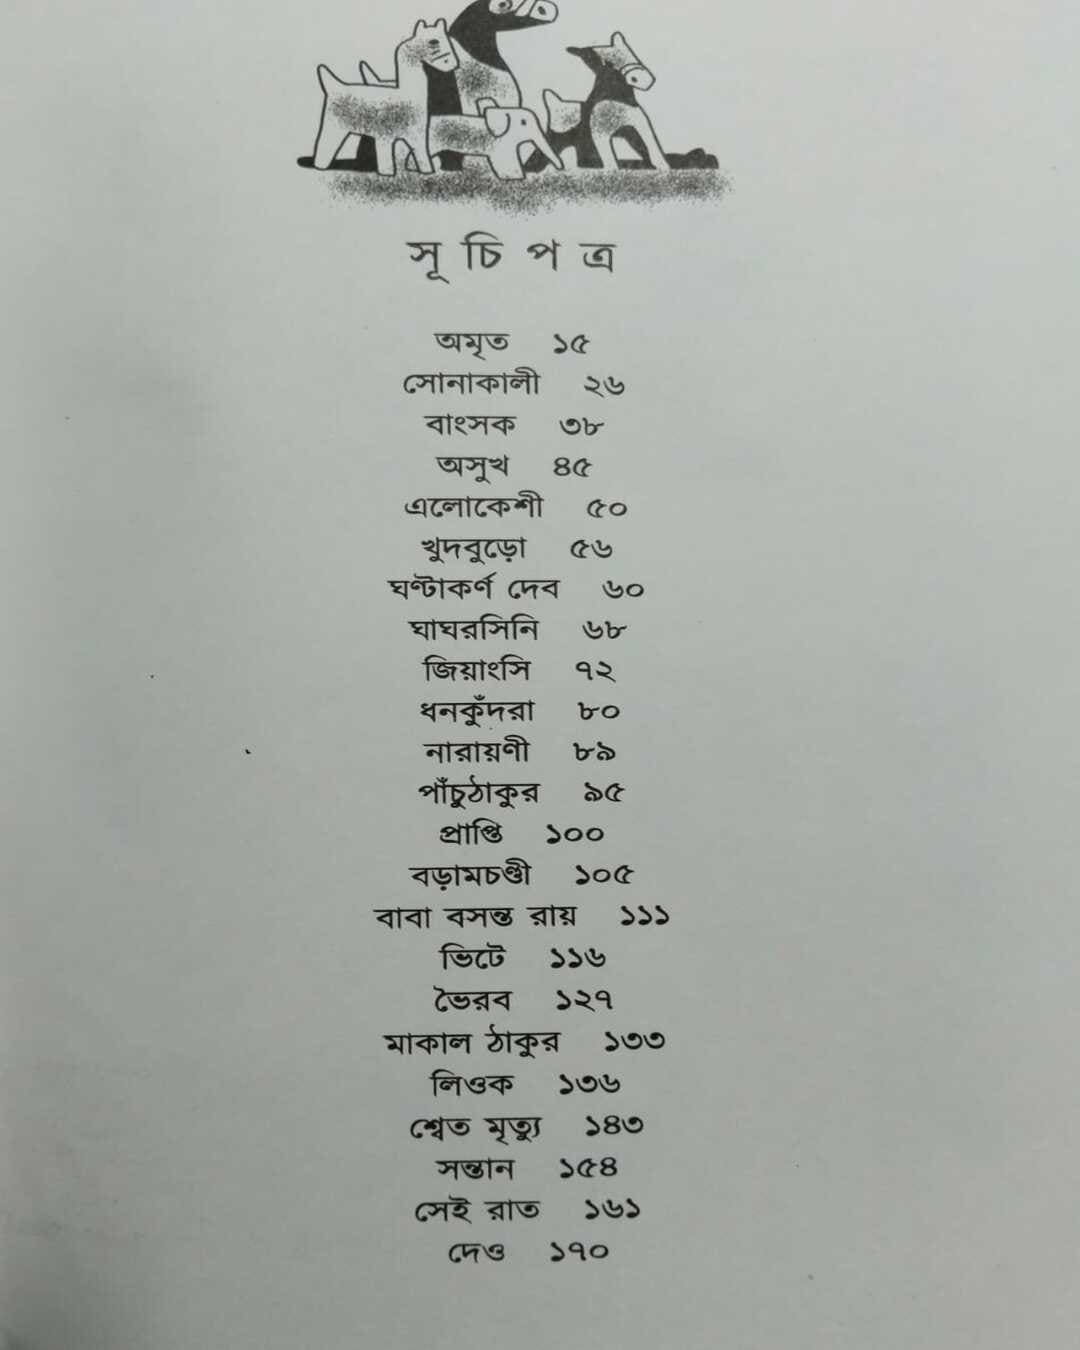 সূচিপত্র
অমৃত ১৫
সোনাকালী ২৬
বাংসক ৩৮
অসুখ ৪৫
এলোকেশী ৫০
খুদবুড়ো ৫৬
ঘণ্টাকর্ণ দেব ৬০
ঘাঘরসিনি ৬৮
জিয়াংসি ৭২
ধনকুঁদরা ৮০
নারায়ণী ৮৯
পাঁচুঠাকুর ৯৫
প্রাপ্তি ১০০
বড়ামচণ্ডী ১০৫
বাবা বসন্ত রায় ১১১
ভিটে ১১৬
ভৈরব ১২৭
মাকাল ঠাকুর ১৩৩
লিওক ১৩৬
শ্বেত মৃত্যু ১৪৩
সন্তান ১৫৪
সেই রাত ১৬১
দেও ১৭০